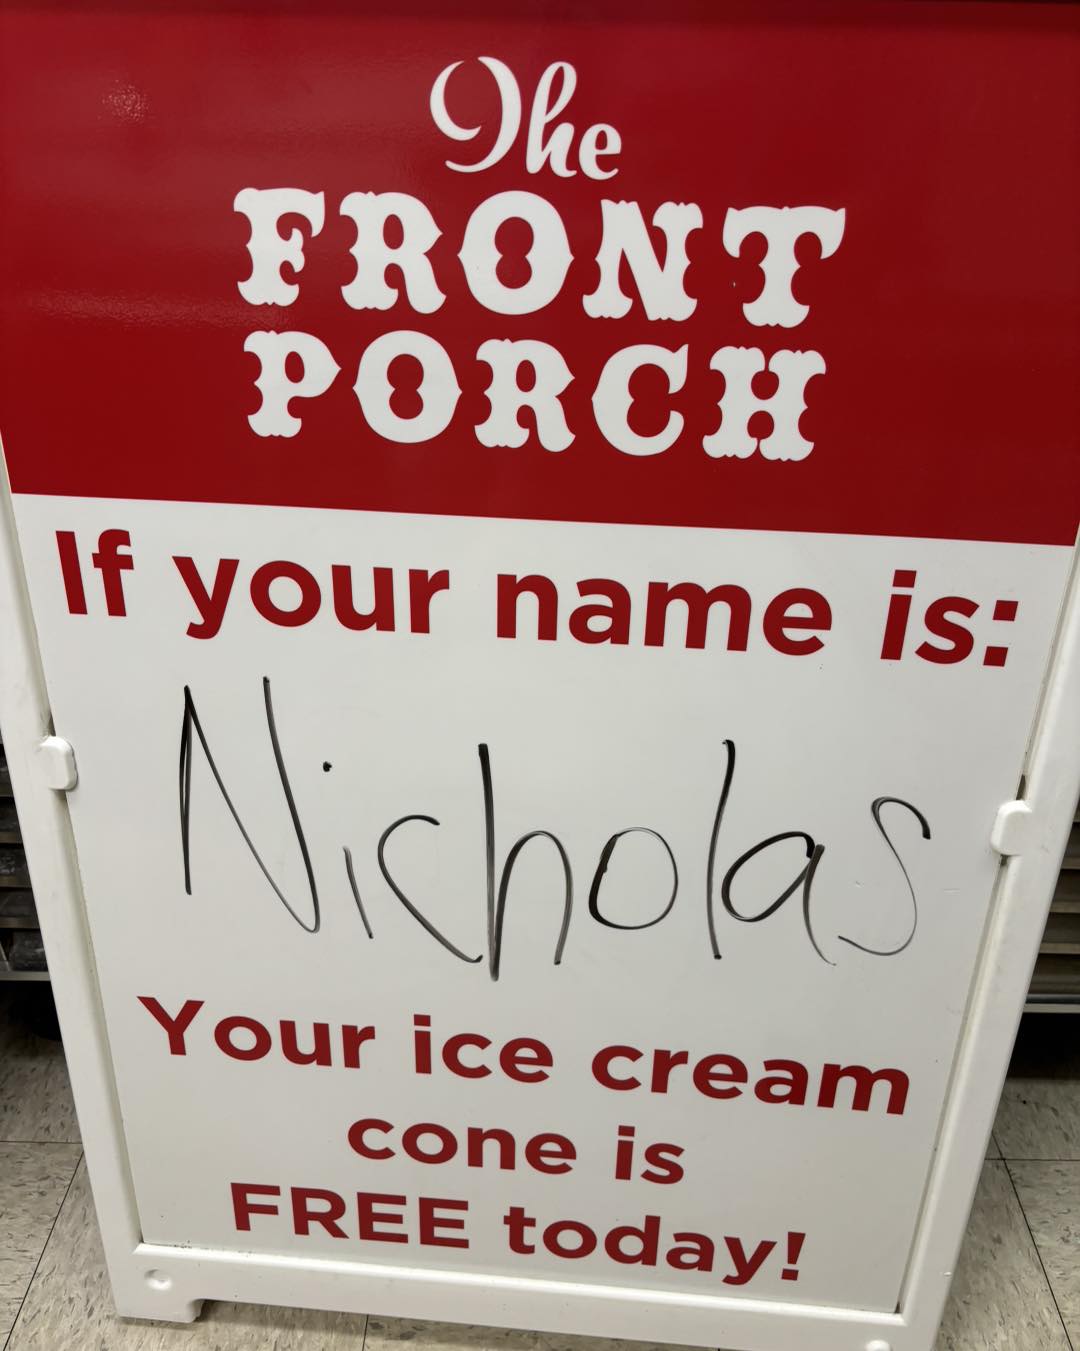 The
FRONT
PORCH
If your name is:
Nicholas
Your ice cream
cone is
FREE today!